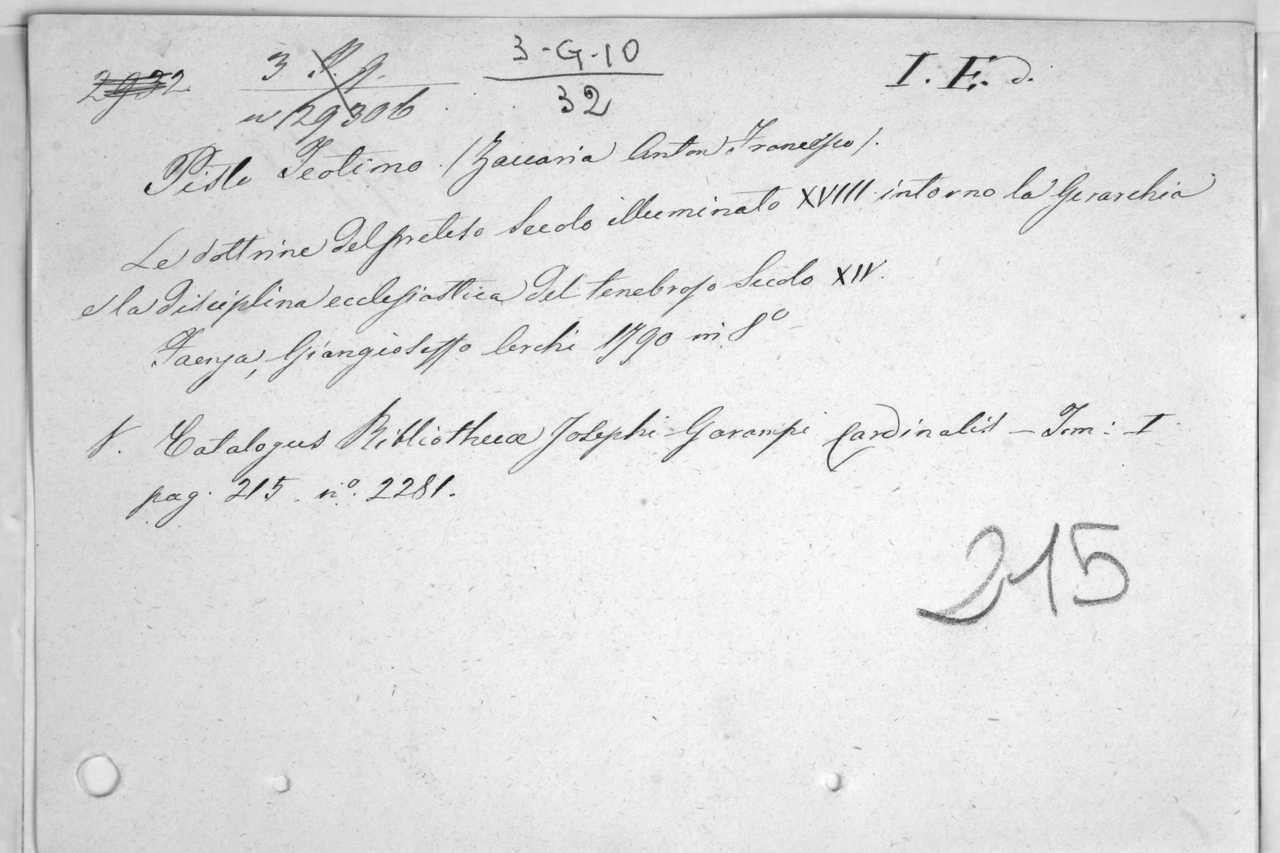 2932 3 P. g. 3-G-10 I. E. d.
n 129306 32
Pisto Teotimo. (Zaccaria Anton Francesco).
Le dottrine del preteso secolo illuminato XVIII intorno la Gerarchia
e la disciplina ecclesiastica del tenebroso secolo XIV.
Faenza, Giangioseffo Archi 1790 in 8º
V. Catalogus Bibliothecæ Josephi Garampi Cardinalis – Tom: I
pag. 215. nº. 2281.
215